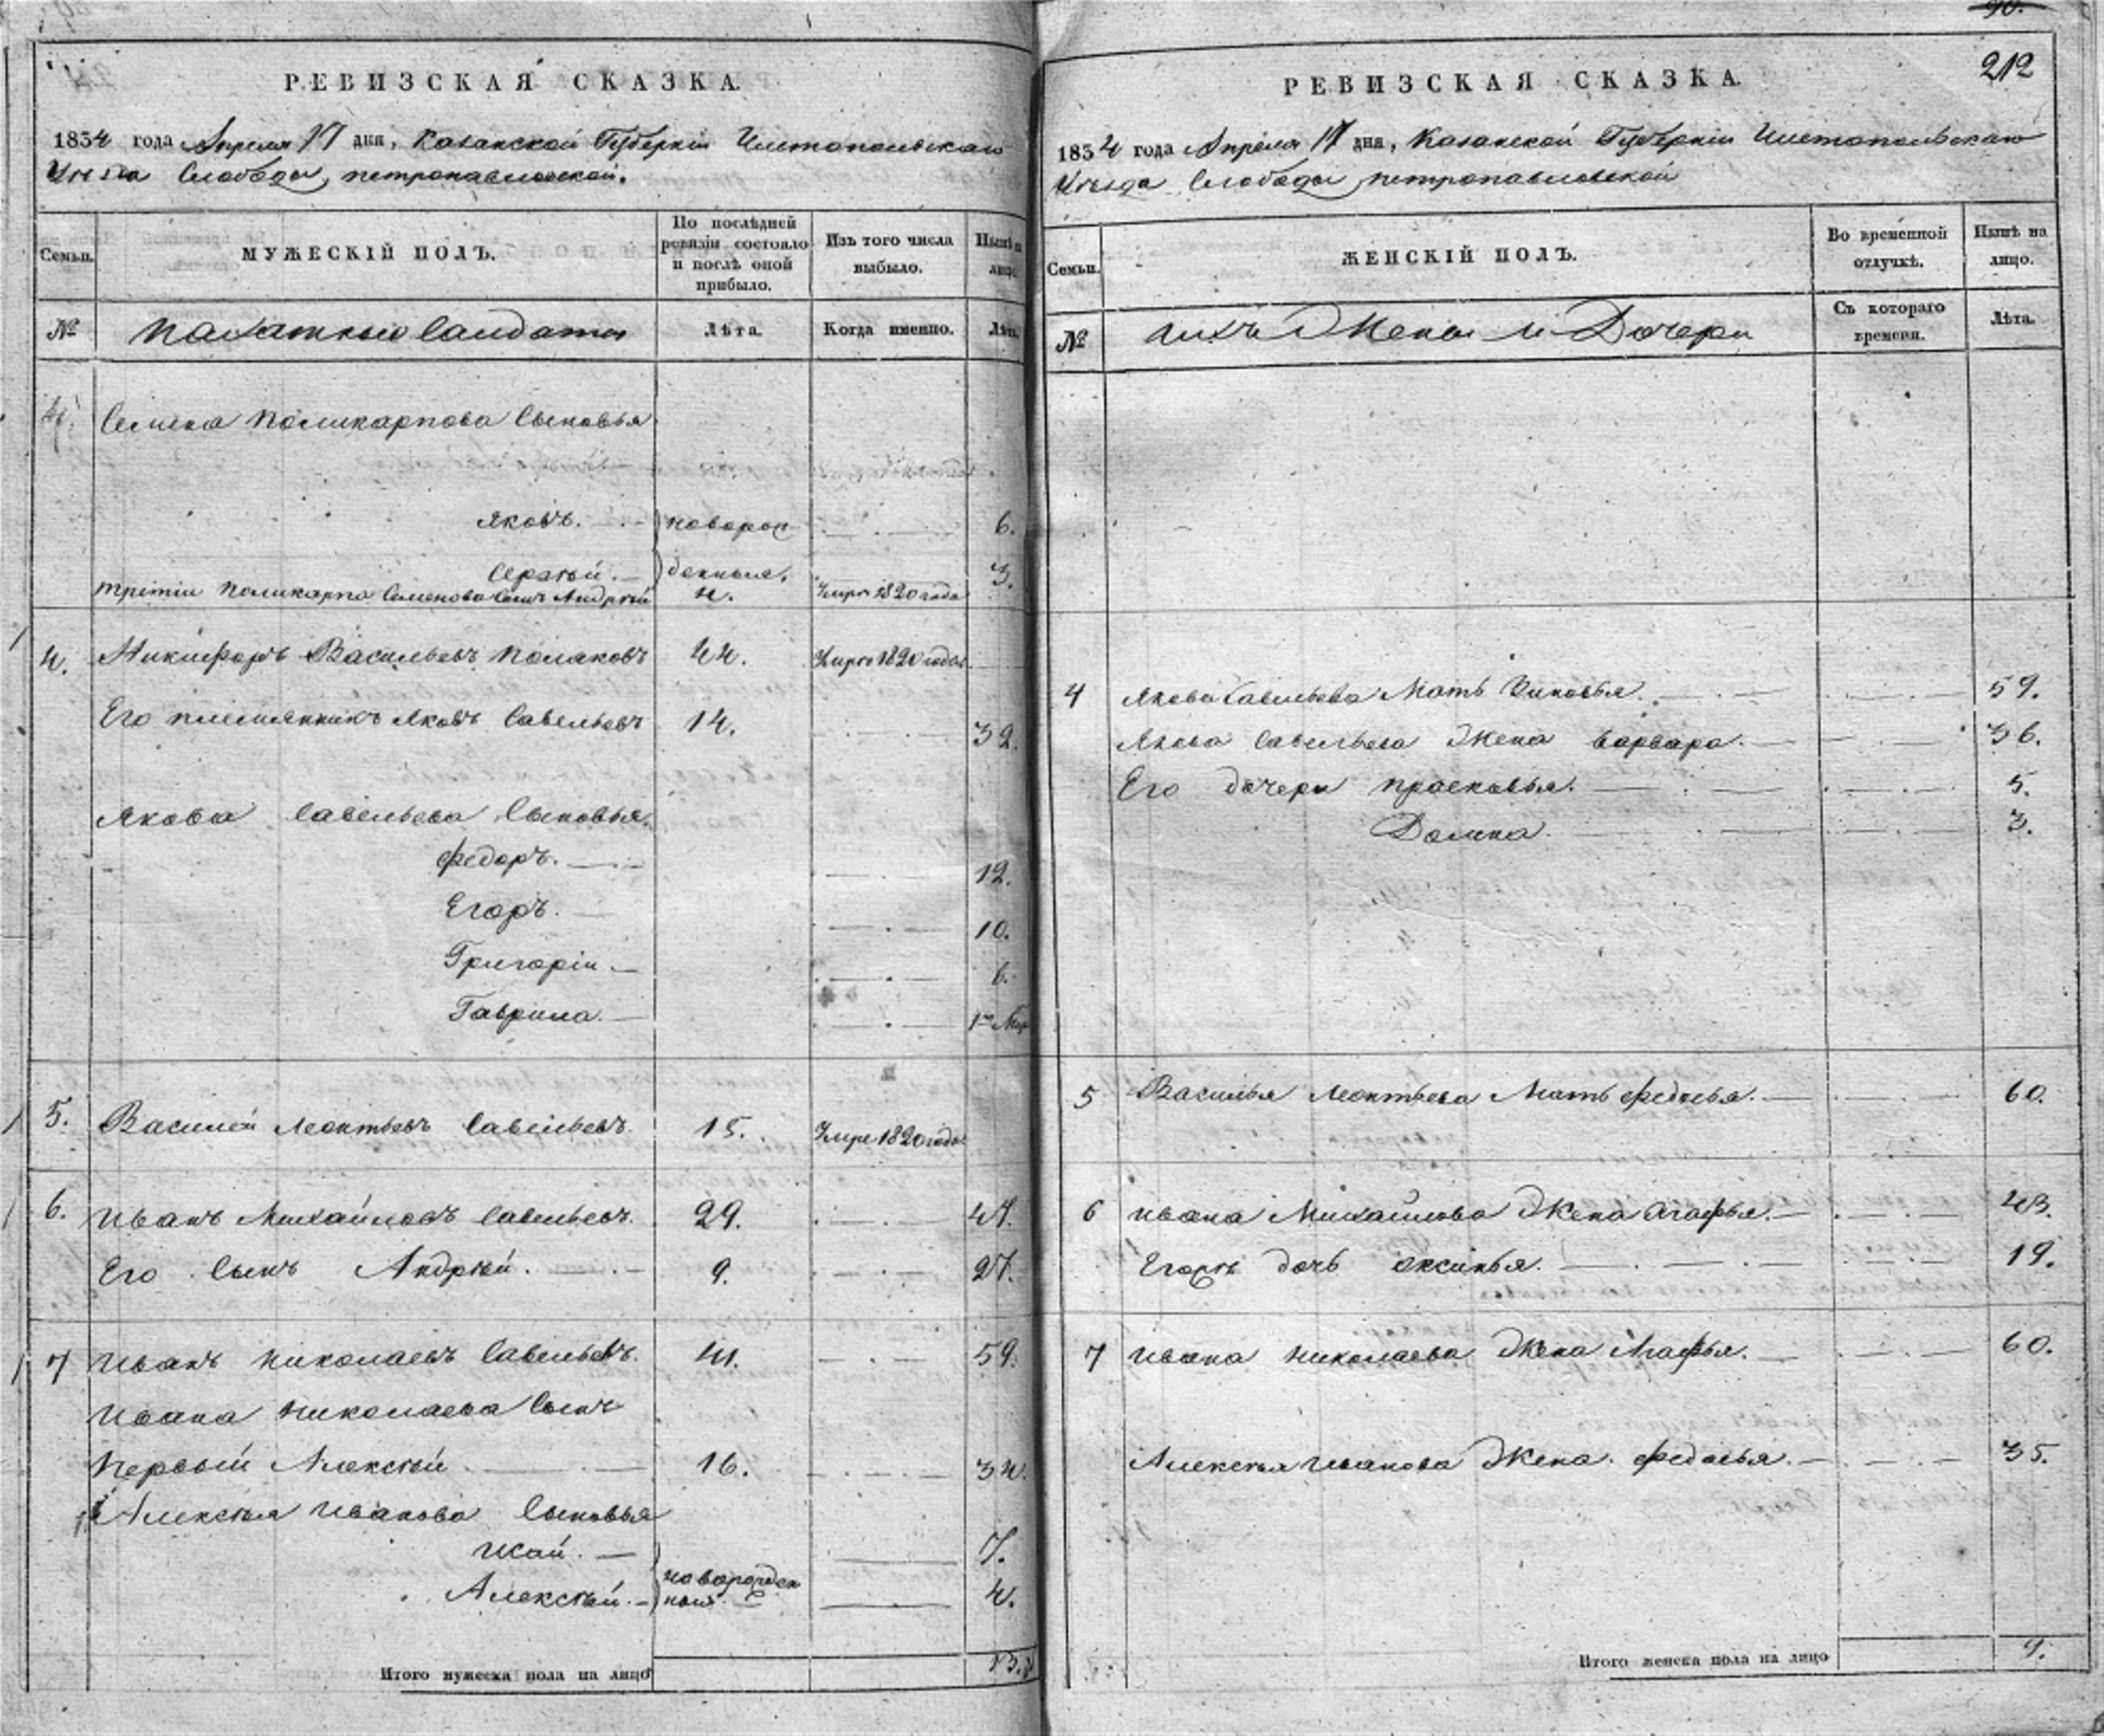 РЕВИЗСКАЯ СКАЗКА.
1834 года Апреля 17 дня, Казанской Губерніи Чистопольскаго
Уезда Слободы, петропавловской.
Семьи.
МУЖЕСКІЙ ПОЛЪ.
По послѣдней ревизіи состояло и послѣ оной прибыло.
Изъ того числа выбыло.
Нынѣ на лицо.
№
Палатные Салдаты
Лѣта.
Когда именно.
Лѣта.
Семена Поликарпова Сыновья
Яковъ. новорож 6.
Сергѣй. денные. 3.
третіи Поликарпа Семенова Сынъ Андрѣй 4. Умре 1820 года
4. Никифоръ Васильевъ Поляковъ 44. Умре 1820 года
Его племянникъ Яковъ Савельевъ 14. 32.
Якова Савельева Сыновья
Федоръ. 12.
Егоръ. 10.
Григоріи. 6.
Гаврила. 1
5. Василей Леонтьевъ Савельевъ. 15. Умре 1820 года
6. Иванъ Михайловъ Савельевъ. 29. 47.
Его Сынъ Андрѣй. 9. 27.
7 Иванъ Николаевъ Савельевъ. 41. 59.
Ивана Николаева Сынъ
Первый Алексѣй 16. 34.
Алексѣя Иванова Сыновья
7.
Алексѣй. новорожден ныя 4.
Итого мужеска пола на лицо 13.
212
РЕВИЗСКАЯ СКАЗКА.
1834 года Апреля 17 дня, Казанской Губерніи Чистопольскаго
Уезда Слободы петропавловской
Семьи.
ЖЕНСКІЙ ПОЛЪ.
Во временной отлучкѣ.
Нынѣ на лицо.
№
ихъ Жены и Дочери
Съ котораго времени.
Лѣта.
4 Якова Савельева Мать Зиновья. 59.
Якова Савельева Жена Варвара. 36.
Его дочери Прасковья. 5.
Домна. 3.
5 Василья Леонтьева Мать Федосья. 60.
6 Ивана Михаилова Жена Агафья. 43.
дочь Оксинья. 19.
7 Ивана Николаева Жена Агафья. 60.
Алексѣя Иванова Жена. Федосья. 35.
Итого женска пола на лицо 9.